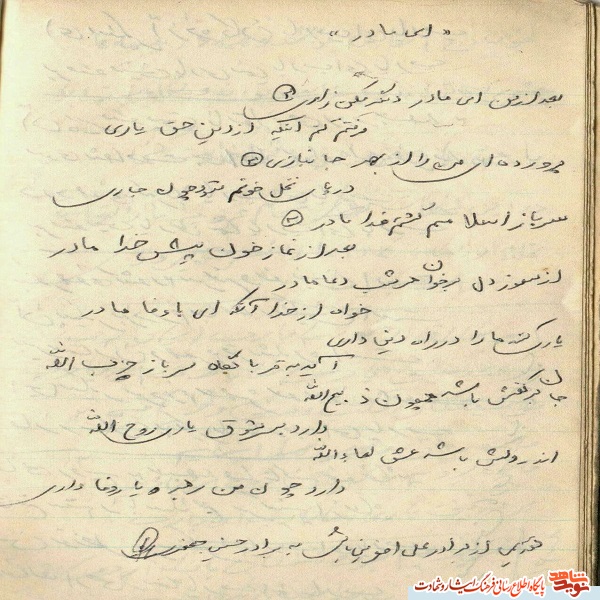 «ای مادر»
بعد از من ای مادر دگر مکن زاری ②
رفتم کنم آنکه از دین حق یاری
پرورده ای من را از بهر جانبازی ②
در پای نخل خونم شود چون جاری
سرباز اسلامم گشتم فدا مادر ②
بعد از نماز خون پیش خدا مادر
از سوز دل برخوان هر شب دعا مادر
خواه از خدا آنکه ای باوفا مادر
یاری کند ما را در راه دین داری
آید به قربانگاه سرباز حزب الله
جان بر کفش باشد همچون ذبیح الله
دارد به سر شوق یاری روح الله
اندر دلش باشد عشق لقاء الله
دارد چون من رهبر یار وفاداری
تقدیمی از برادر علی به برادر حسین
نوید شاهد پایگاه اطلاع رسانی فرهنگ ایثار و شهادت